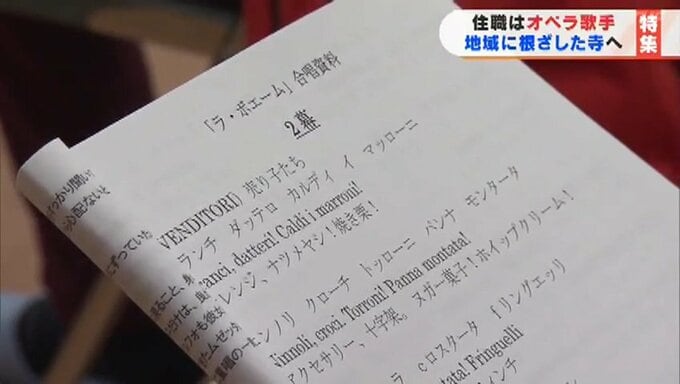 住職はオペラ歌手
地域に根ざした寺へ
特集
「ラ・ボエーム」合唱資料
2幕
VENDITORI) 売り子たち
ランチ ダッテロ カルディ イ マッローニ
anci, datteri! Caldi i marroni!
レンジ、ナツメヤシ！焼き栗！
ンノリ クローチ トッローニ パンナ モンタータ
Ninnoli, croci. Torroni! Panna montata!
アクセサリー、十字架。ヌガー菓子！ホイップクリーム！
ラ cロスタータ fリングエッリ
tata! Fringuelli